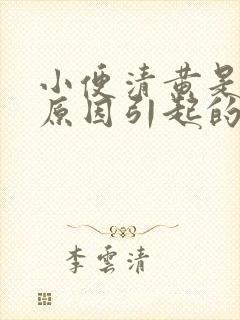 小便清黄是
原因引起的
李云清